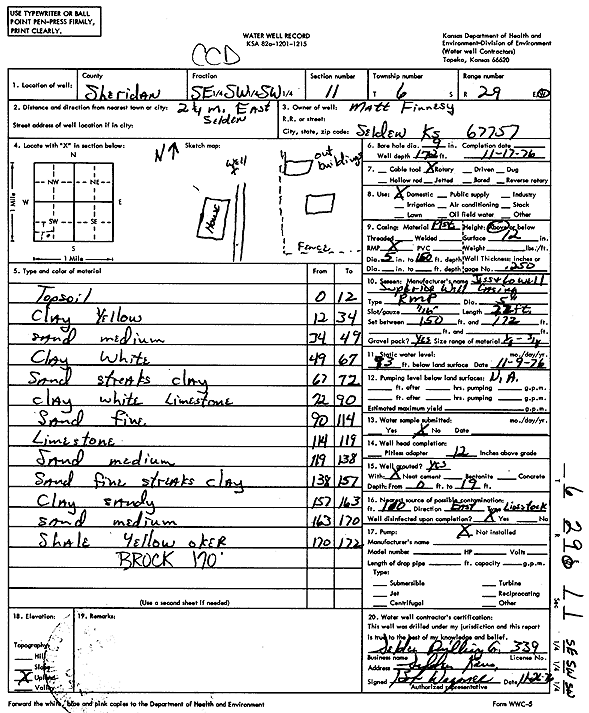 USE TYPEWRITER OR BALL
POINT PEN-PRESS FIRMLY,
PRINT CLEARLY.
WATER WELL RECORD
KSA 82a-1201-1215
Kansas Department of Health and
Environment-Division of Environment
(Water well Contractors)
Topeka, Kansas 66620
CCD
1. Location of well: County Fraction Section number Township number Range number
Sheridan SE 1/4 SW 1/4 SW 1/4 11 T 6 S R 29 E/W
2. Distance and direction from nearest town or city: 2 1/4 m. East Selden
Street address of well location if in city:
3. Owner of well: Matt Finnesy
R.R. or street:
City, state, zip code: Selden Ks 67757
4. Locate with "X" in section below: Sketch map:
N
NW NE
W E
SW SE
S
1 Mile
1 Mile
N
Well
X
House
out buildings
Fence
6. Bore hole dia. 9 in. Completion date
Well depth 172 ft. 11-17-76
7. Cable tool X Rotary Driven Dug
Hollow rod Jetted Bored Reverse rotary
8. Use: X Domestic Public supply Industry
Irrigation Air conditioning Stock
Lawn Oil field water Other
9. Casing: Material Height: Above or below
Threaded Welded Surface 12 in.
RMP X PVC Weight lbs./ft.
Dia. 5 in. to 150 ft. depth Wall Thickness: inches or
Dia. in. to ft. depth gage No. .250
10. Screen: Manufacturer's name
Type RMP Dia. 5"
Slot/gauze 1/16" Length 22 ft
Set between 150 ft. and 172 ft.
ft. and ft.
Gravel pack? Yes Size range of material
11. Static water level: mo./day/yr.
93 ft. below land surface Date 11-9-76
12. Pumping level below land surfaces: N.A.
ft. after hrs. pumping g.p.m.
ft. after hrs. pumping g.p.m.
Estimated maximum yield g.p.m.
13. Water sample submitted: mo./day/yr.
Yes X No Date
14. Well head completion:
Pitless adapter 12 Inches above grade
15. Well grouted? Yes
With: X Neat cement Bentonite Concrete
Depth: From 0 ft. to 19 ft.
16. Nearest source of possible contamination:
ft. 100 Direction East Type Livestock
Well disinfected upon completion? X Yes No
17. Pump: X Not installed
Manufacturer's name
Model number HP Volts
Length of drop pipe ft. capacity g.p.m.
Type:
Submersible Turbine
Jet Reciprocating
Centrifugal Other
5. Type and color of material From To
Topsoil 0 12
Clay Yellow 12 34
Sand medium 34 49
Clay White 49 67
Sand streaks clay 67 72
Clay white Limestone 72 90
Sand fine 90 114
Limestone 114 119
Sand medium 119 138
Sand fine streaks clay 138 157
Clay sandy 157 163
Sand medium 163 170
Shale Yellow oker 170 172
BROCK 170'
(Use a second sheet if needed)
18. Elevation:
Topography:
Hill
Slope
X Upland
Valley
19. Remarks:
20. Water well contractor's certification:
This well was drilled under my jurisdiction and this report
is true to the best of my knowledge and belief.
Selden Drilling Co. 339
Business name License No.
Address Selden Kans.
Signed Date
Authorized representative
Forward the white, blue and pink copies to the Department of Health and Environment
Form WWC-5
T 6 R 29 W Sec 11 SE SW SW
1/4 1/4 1/4